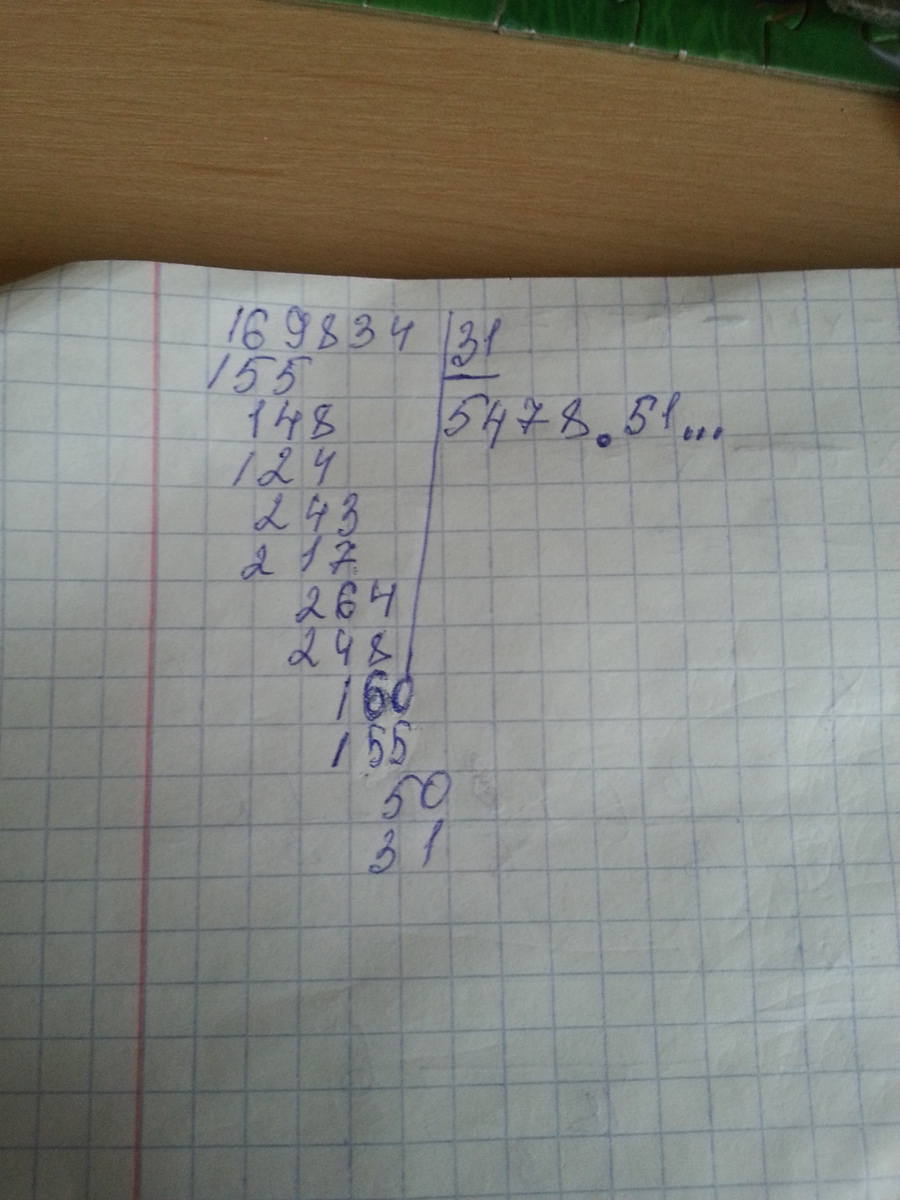 169834 31
155
148 5478.51...
124
243
217
264
248
160
155
50
31